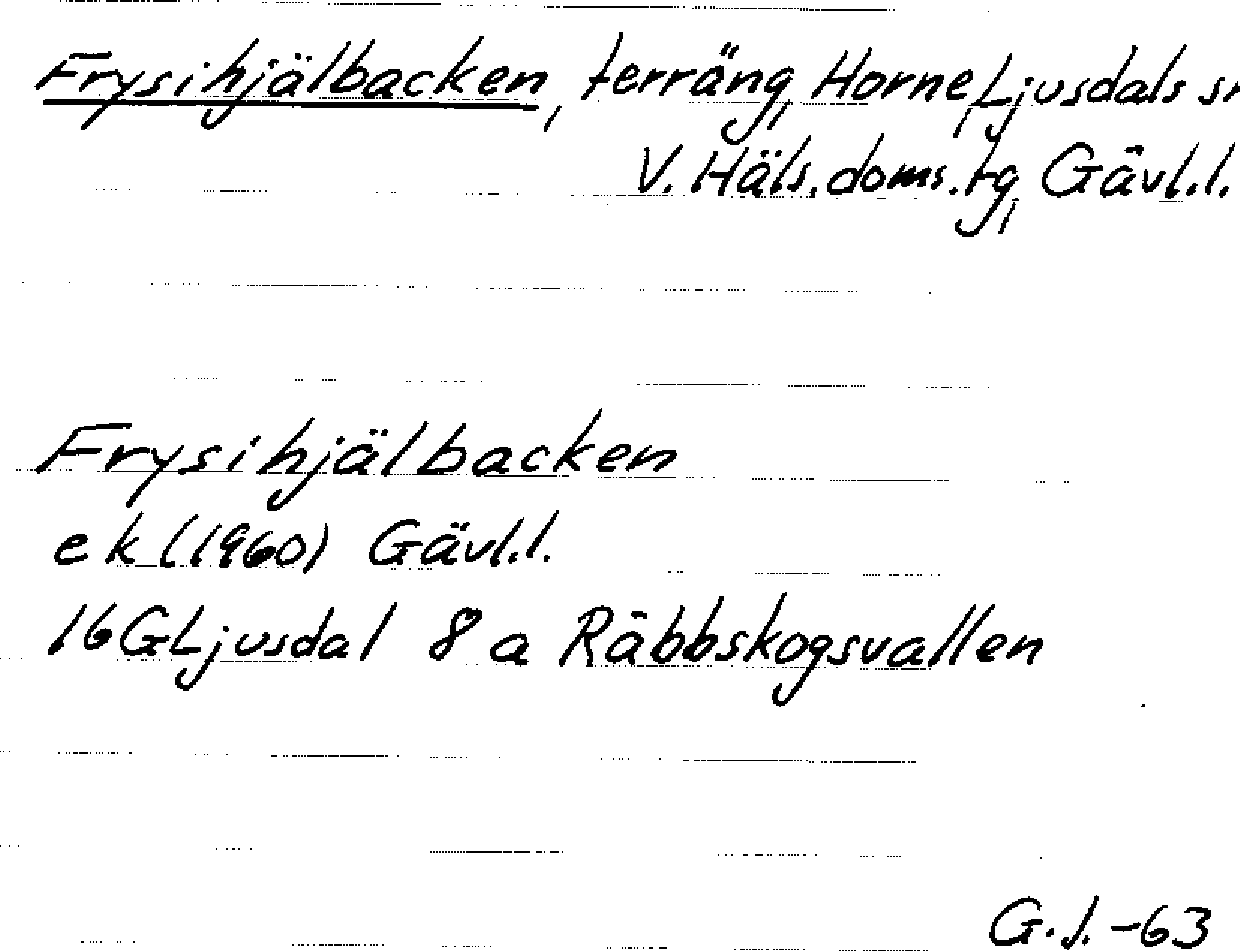 Frysihjälbacken, terräng, Horne, Ljusdals sn
V. Häls. doms. tg, Gävl.l.
Frysihjälbacken
ek (1960) Gävl.l.
16G Ljusdal 8 a Räbbskogsvallen
G.J. -63